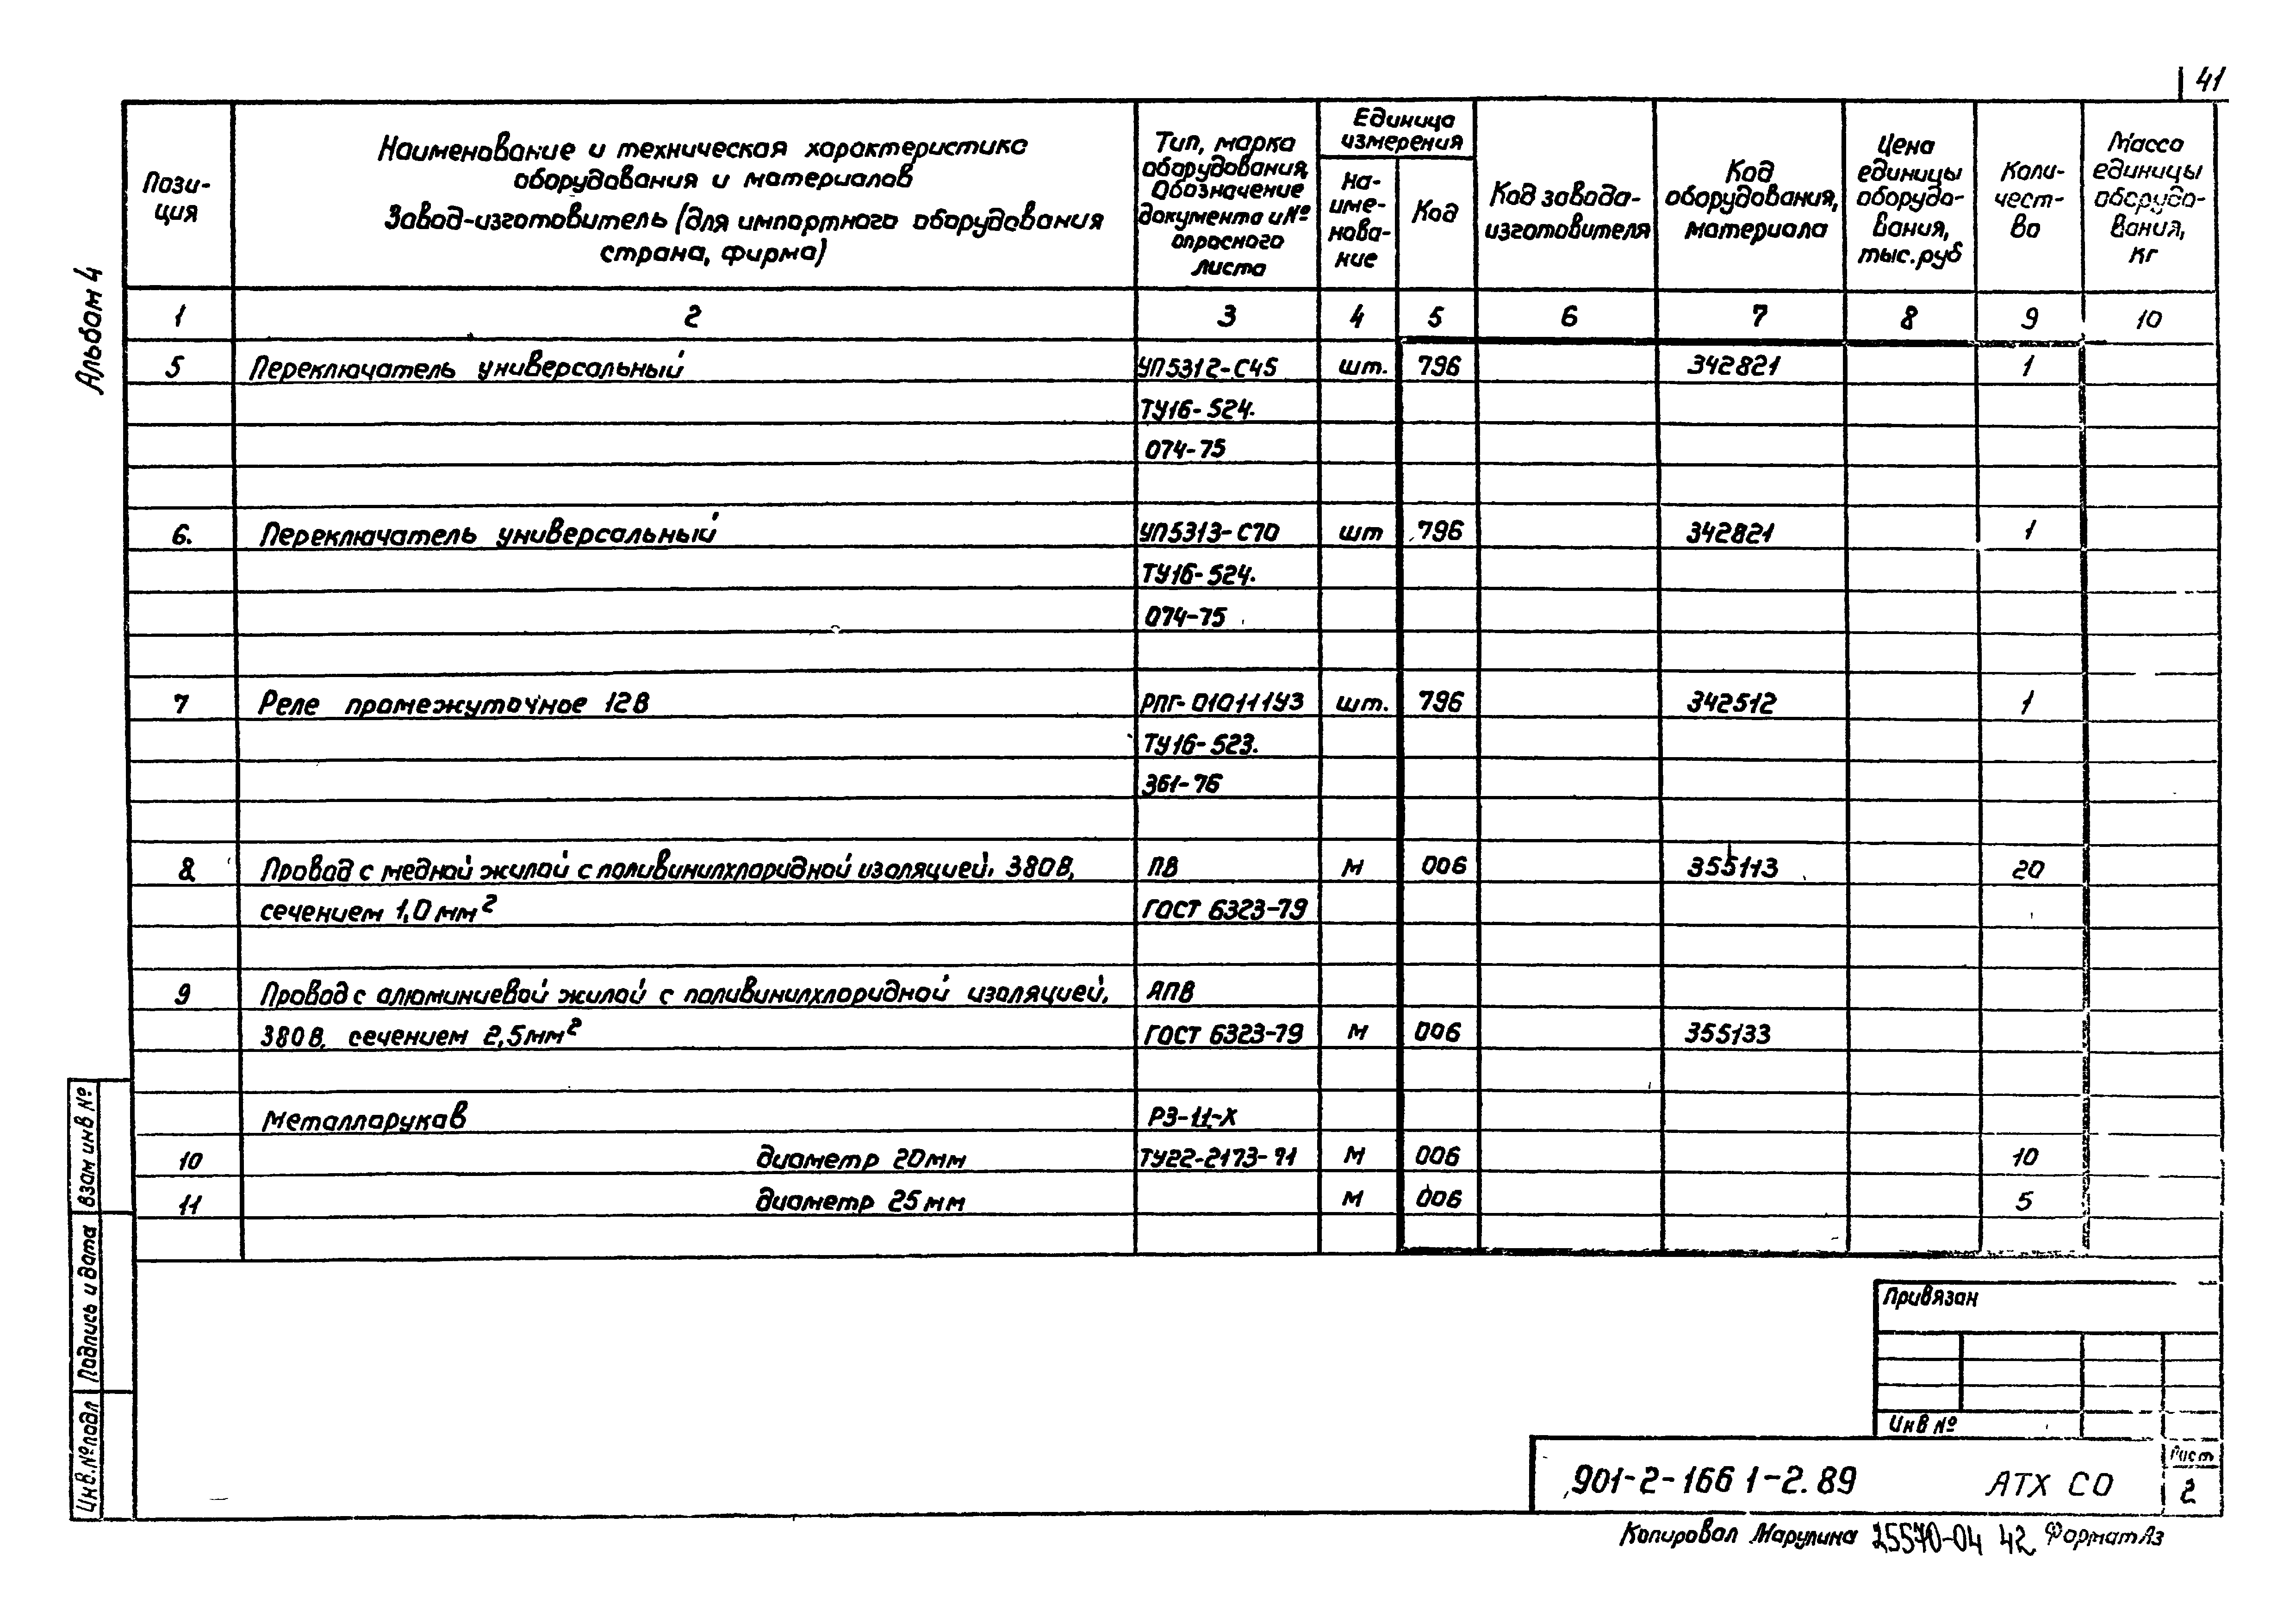 41
Альбом 4
Пози-
ция
Наименование и техническая характеристика
оборудования и материалов
Завод-изготовитель (для импортного оборудования
страна, фирма)
Тип, марка
оборудования,
Обозначение
документа и №
опросного
листа
Единица
измерения
На-
име-
нова-
ние
Код
Код завода-
изготовителя
Код
оборудования,
материала
Цена
единицы
оборудо-
вания,
тыс.руб
Коли-
чест-
во
Масса
единицы
оборудо-
вания,
кг
1 2 3 4 5 6 7 8 9 10
5 Переключатель универсальный УП5312-С45 шт. 796 342821 1
ТУ16-524.
074-75
6. Переключатель универсальный УП5313-С70 шт 796 342821 1
ТУ16-524.
074-75
7 Реле промежуточное 12В РПГ-010111У3 шт. 796 342512 1
ТУ16-523.
361-76
8. Провод с медной жилой с поливинилхлоридной изоляцией, 380В, ПВ м 006 355113 20
сечением 1,0 мм² ГОСТ 6323-79
9 Провод с алюминиевой жилой с поливинилхлоридной изоляцией, АПВ
380В, сечением 2,5мм² ГОСТ 6323-79 м 006 355133
Металлорукав РЗ-Ц-Х
10 диаметр 20мм ТУ22-2173-71 м 006 10
11 диаметр 25мм м 006 5
Взам инв №
Подпись и дата
Инв.№подл
Привязан
Инв №
901-2-166 1-2.89 АТХ СО
Лист
2
Копировал Марулина 25570-04 42 Формат А3